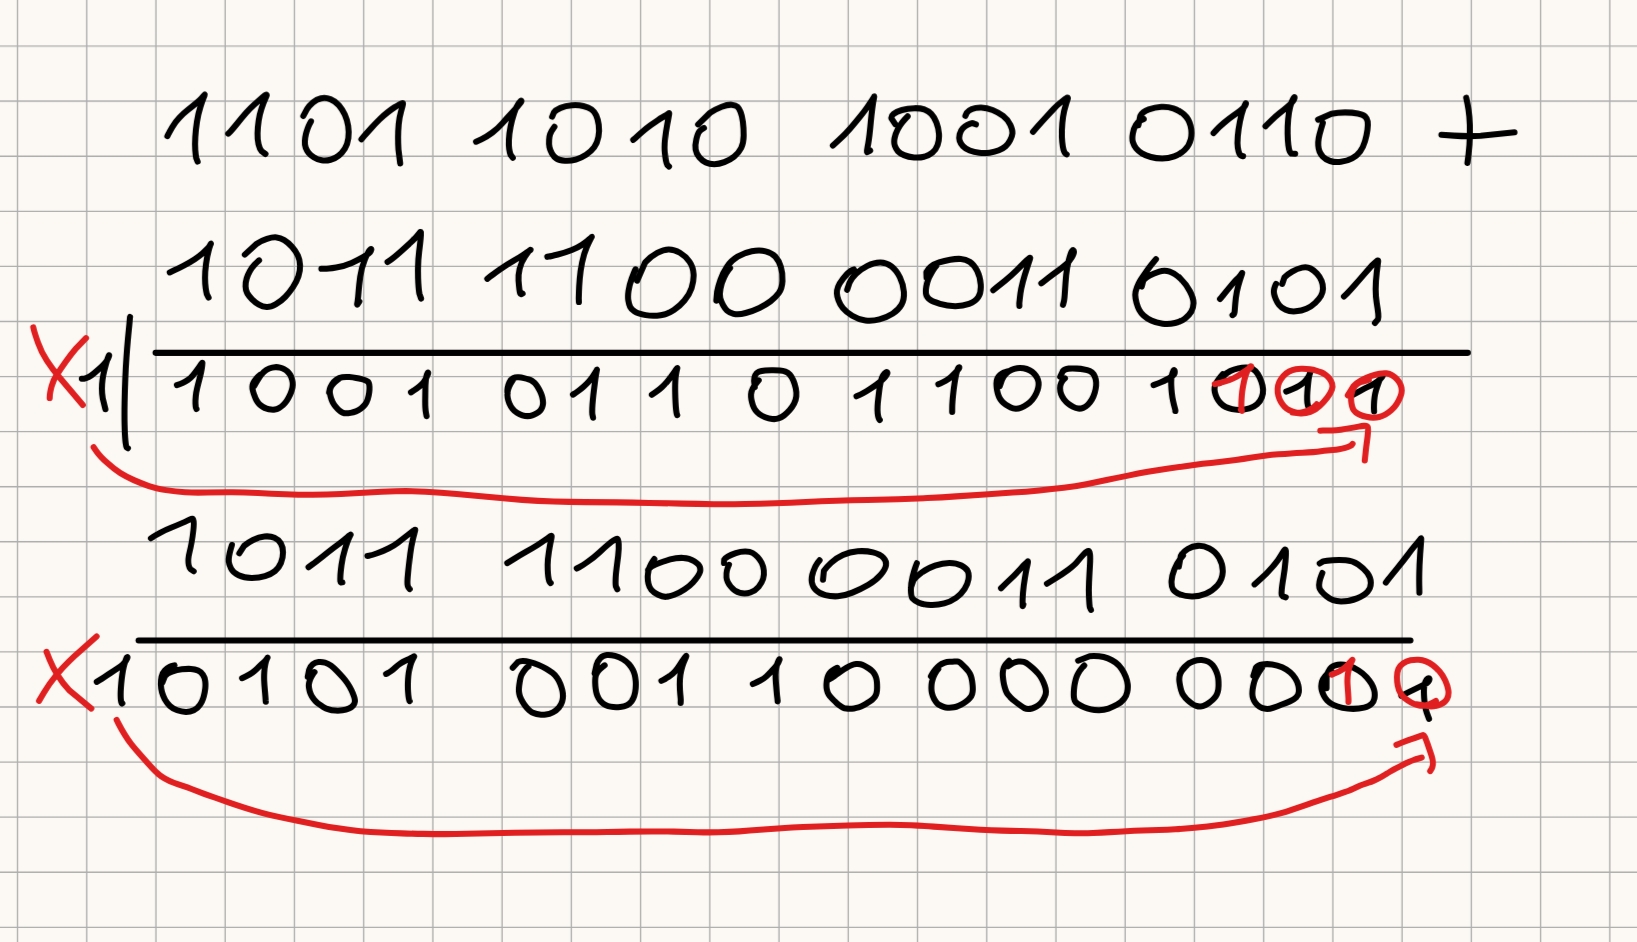 1101 1010 1001 0110 +
1011 1100 0011 0101
X1| 1001 0110 1100 1100
1011 1100 0011 0101
X10101 0011 0000 0010